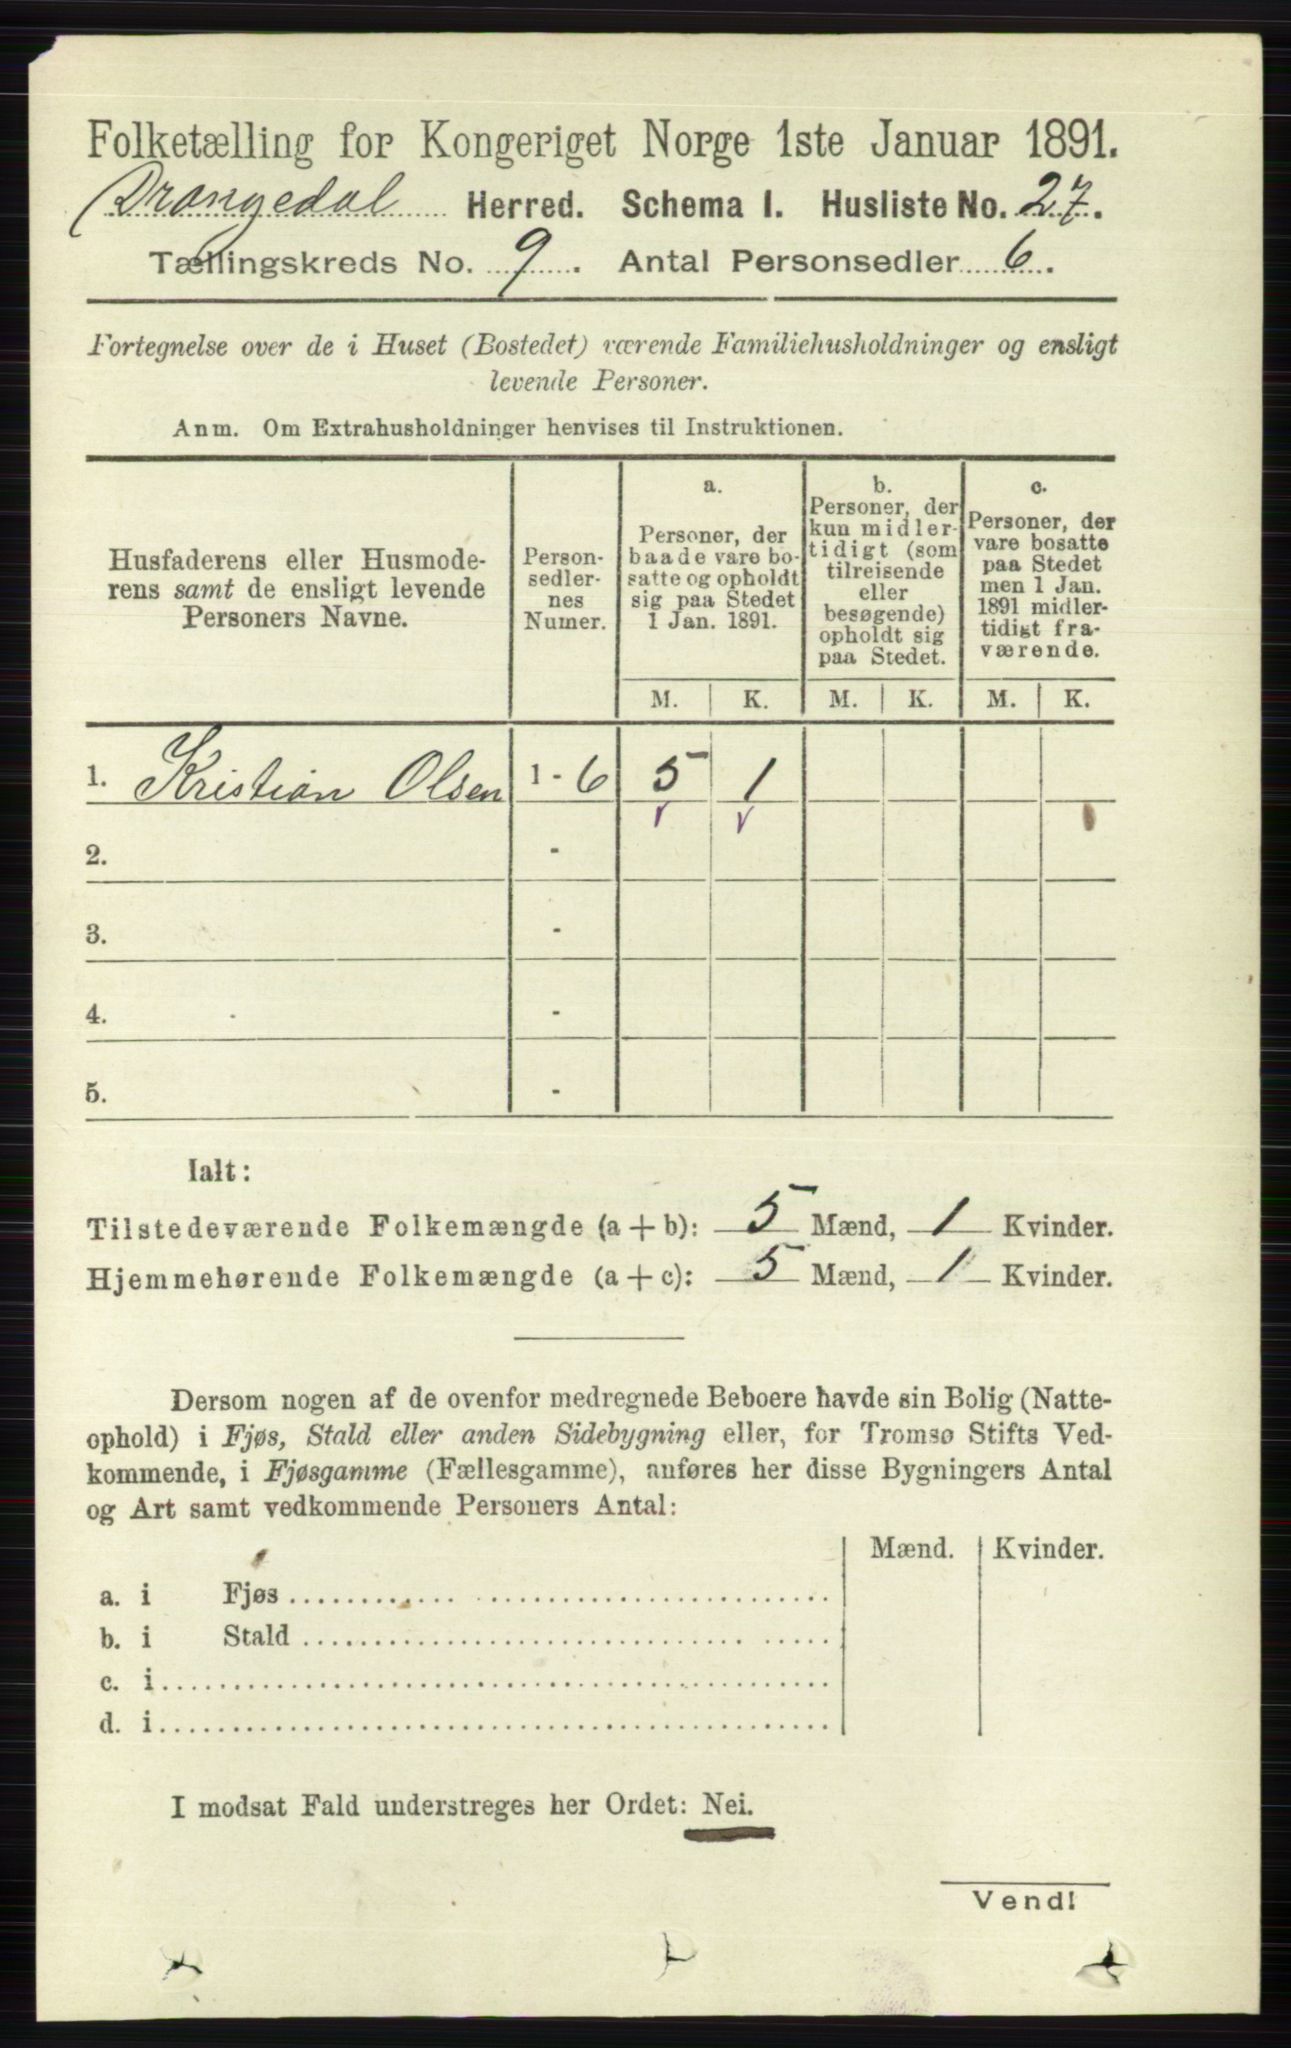 Folketælling for Kongeriget Norge 1ste Januar 1891.
Drangedal Herred. Schema I. Husliste No. 27.
Tællingskreds No. 9. Antal Personsedler 6.
Fortegnelse over de i Huset (Bostedet) værende Familiehusholdninger og ensligt
levende Personer.
Anm. Om Extrahusholdninger henvises til Instruktionen.
Husfaderens eller Husmode-
rens samt de ensligt levende
Personers Navne.
Person-
sedler-
nes
Numer.
a.
Personer, der
baade vare bo-
satte og opholdt
sig paa Stedet
1 Jan. 1891.
b.
Personer, der
kun midler-
tidigt (som
tilreisende
eller
besøgende)
opholdt sig
paa Stedet.
c.
Personer, der
vare bosatte
paa Stedet
men 1 Jan.
1891 midler-
tidigt fra-
værende.
M. K. M. K. M. K.
1. Kristian Olsen 1 - 6 5 1
2. -
3. -
4. -
5. -
Ialt:
Tilstedeværende Folkemængde (a + b): 5 Mænd, 1 Kvinder.
Hjemmehørende Folkemængde (a + c): 5 Mænd, 1 Kvinder.
Dersom nogen af de ovenfor medregnede Beboere havde sin Bolig (Natte-
ophold) i Fjøs, Stald eller anden Sidebygning eller, for Tromsø Stifts Ved-
kommende, i Fjøsgamme (Fællesgamme), anføres her disse Bygningers Antal
og Art samt vedkommende Personers Antal:
Mænd. Kvinder.
a. i Fjøs
b. i Stald
c. i
d. i
I modsat Fald understreges her Ordet: Nei.
Vend!